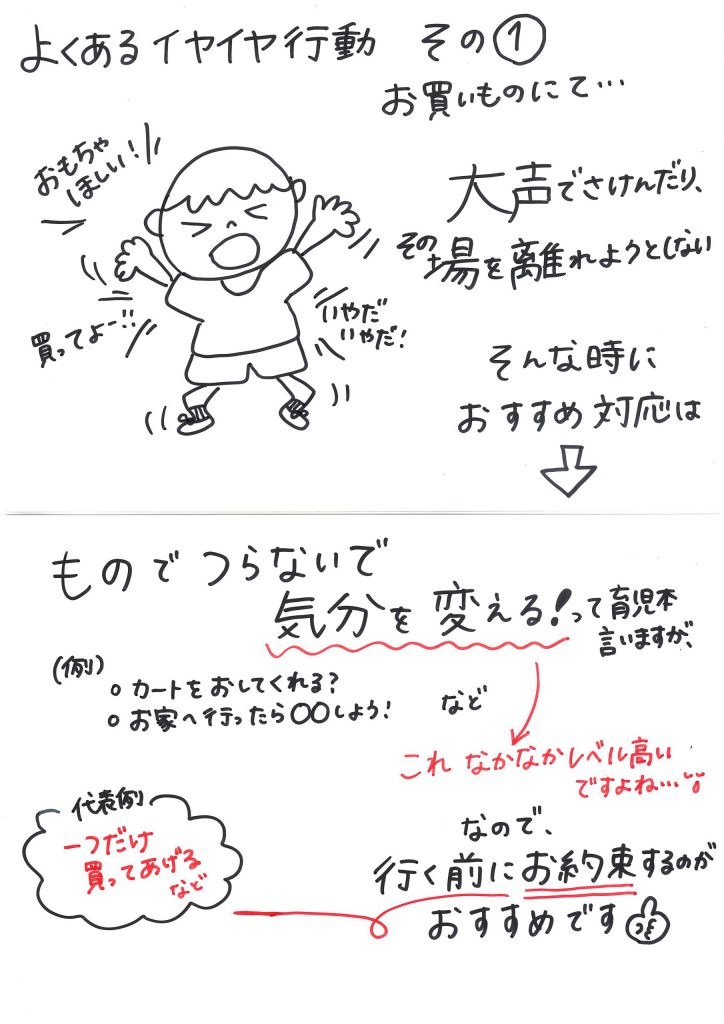 よくあるイヤイヤ行動 その①
お買いものにて…
おもちゃ
ほしい!
大声でさけんだり、
その場を離れようとしない
買ってよー!!
いやだ
いやだ!
そんな時に
おすすめ対応は
ものでつらないで
気分を変える!って育児本
言いますが、
(例)
○ カートをおしてくれる?
○ お家へ行ったら〇〇しよう! など
これ なかなかレベル高い
ですよね…
代表例
一つだけ
買ってあげる
など
なので、
行く前にお約束するのが
おすすめです